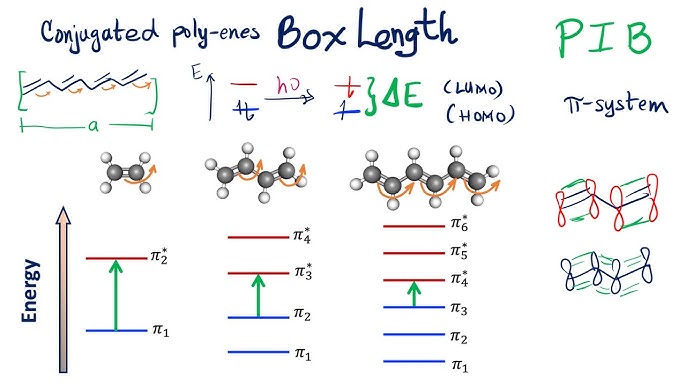 Conjugated poly-enes Box Length
PIB
E
hν
ΔE
(LUMO)
(HOMO)
π-system
a
Energy
π₂*
π₁
π₄*
π₃*
π₂
π₁
π₆*
π₅*
π₄*
π₃
π₂
π₁